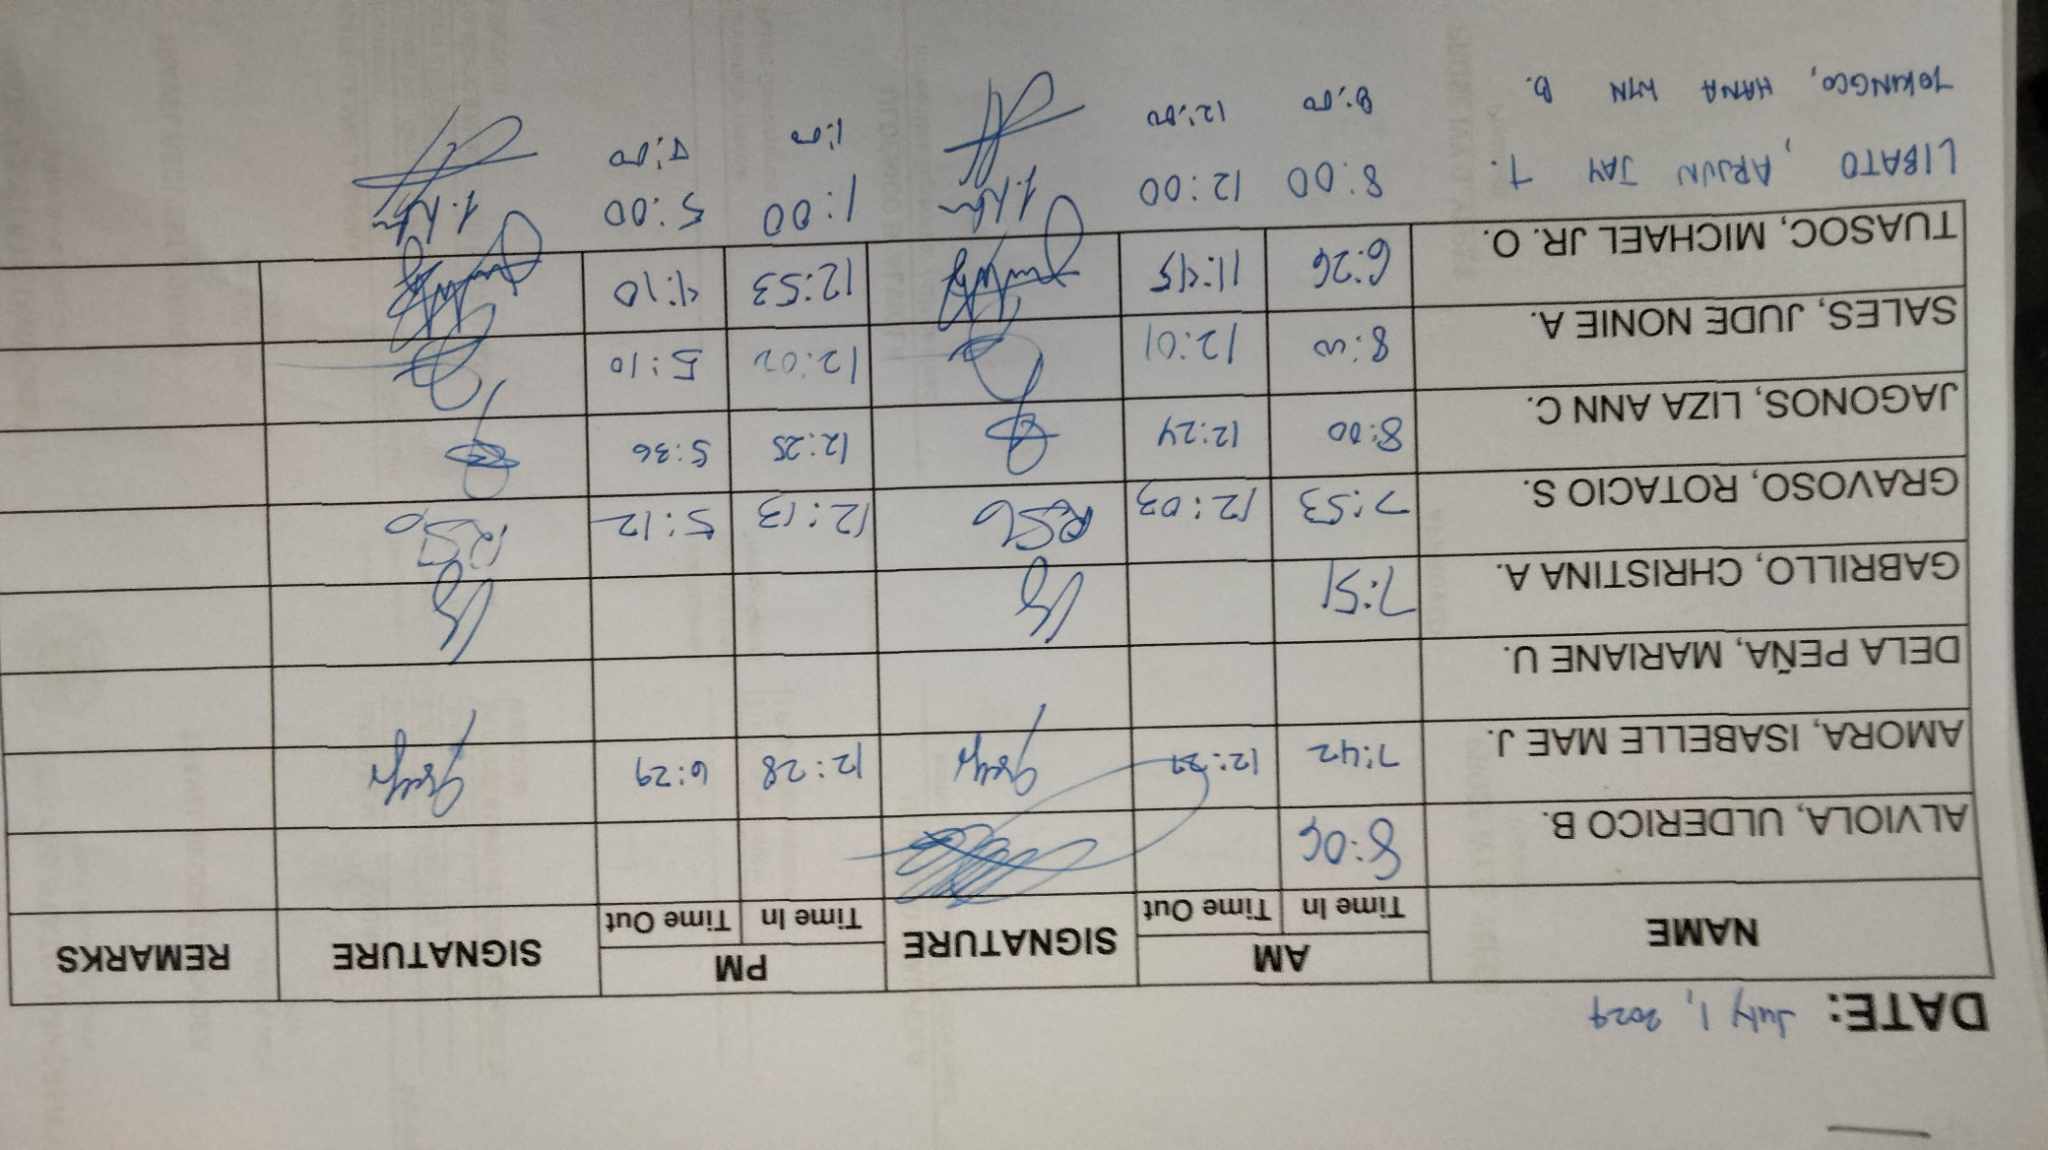 DATE: July 1, 2024
NAME AM SIGNATURE PM SIGNATURE REMARKS
Time In Time Out Time In Time Out
ALVIOLA, ULDERICO B. 8:06
AMORA, ISABELLE MAE J. 7:42 12:27 12:28 6:29
DELA PEÑA, MARIANE U.
GABRILLO, CHRISTINA A. 7:51
GRAVOSO, ROTACIO S. 7:53 12:03 RSG 12:13 5:12 RSG
JAGONOS, LIZA ANN C. 8:00 12:24 12:25 5:36
SALES, JUDE NONIE A. 8:00 12:01 12:02 5:10
TUASOC, MICHAEL JR. O. 6:26 11:45 12:53 4:10
LIBATO, ARJUN JAY T. 8:00 12:00 1:00 5:00
TOKINGCO, HANA WYN B. 8:00 12:00 1:00 4:00